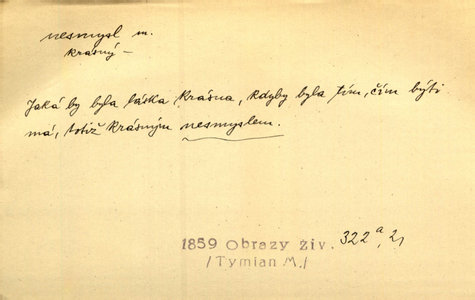 nesmysl m.
krásný –
Jaká by byla láska krásna, kdyby byla tím, čím býti
má, totiž krásným nesmyslem.
1859 Obrazy živ. 322a, 21
/Tymian M./